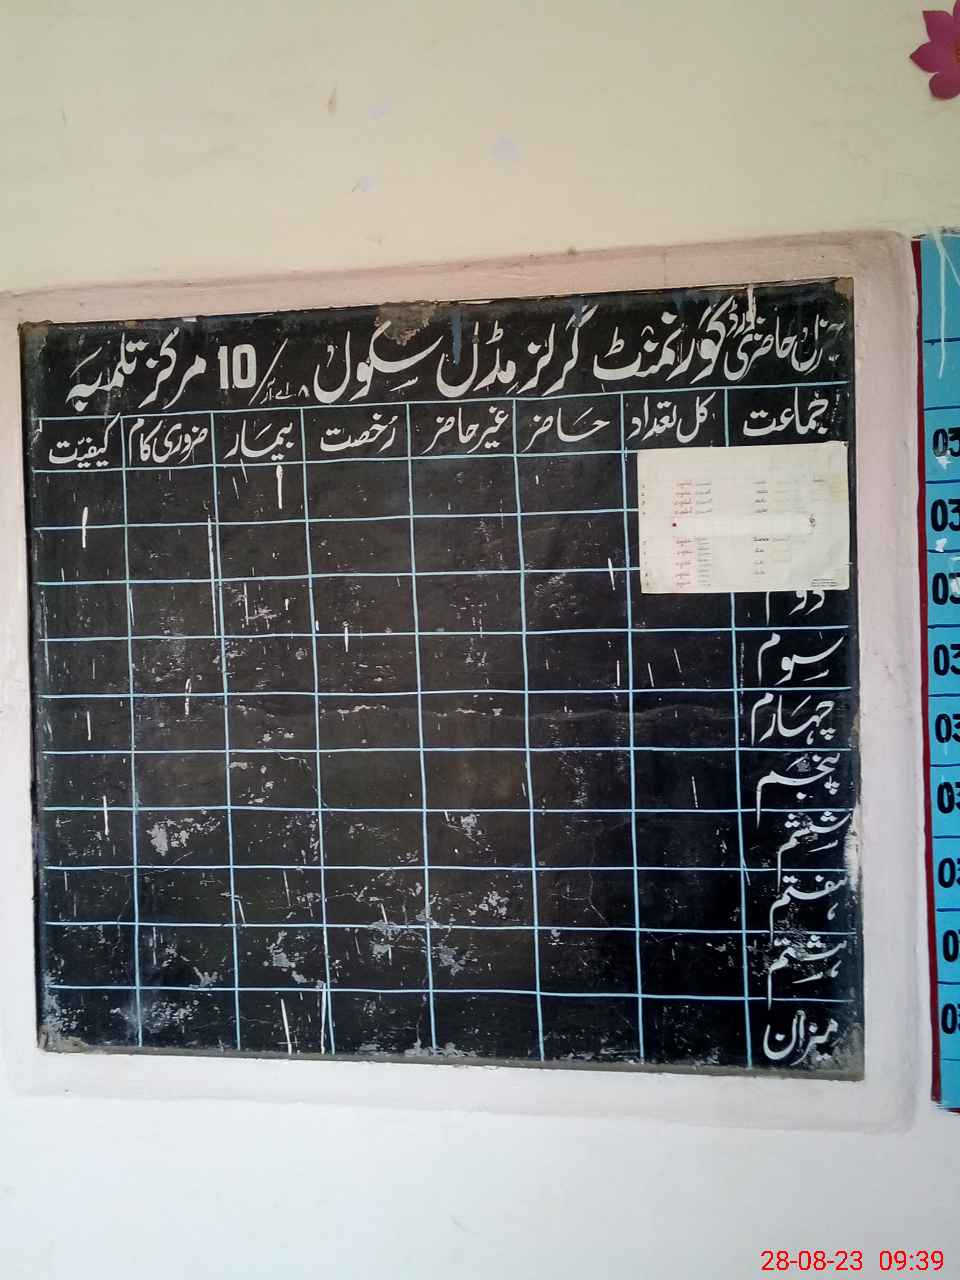 جنرل حاضری بورڈ گورنمنٹ گرلز مڈل سکول 10/۸ اے آر مرکز تلمبہ
جماعت کل تعداد حاضر غیر حاضر رخصت بیمار ضروری کام کیفیت
دوم
سوم
چہارم
پنجم
ششم
ہفتم
ہشتم
میزان
03
03
03
03
03
03
28-08-23 09:39